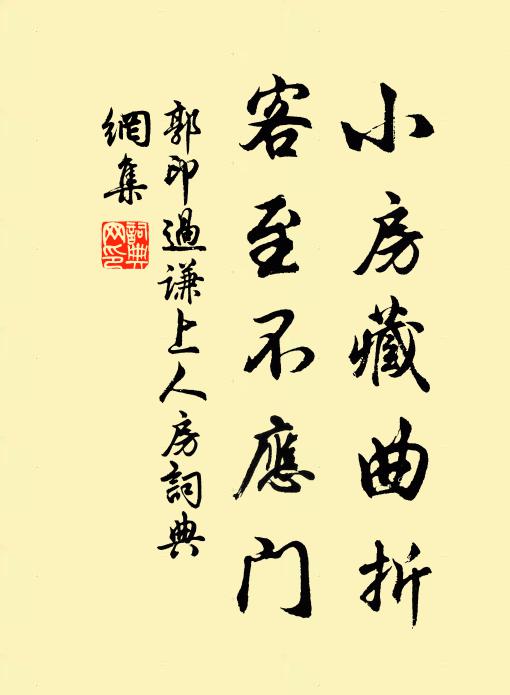 小房藏曲折
客至不應门
郭印過谦上人房詞典
網集
詞典
网印